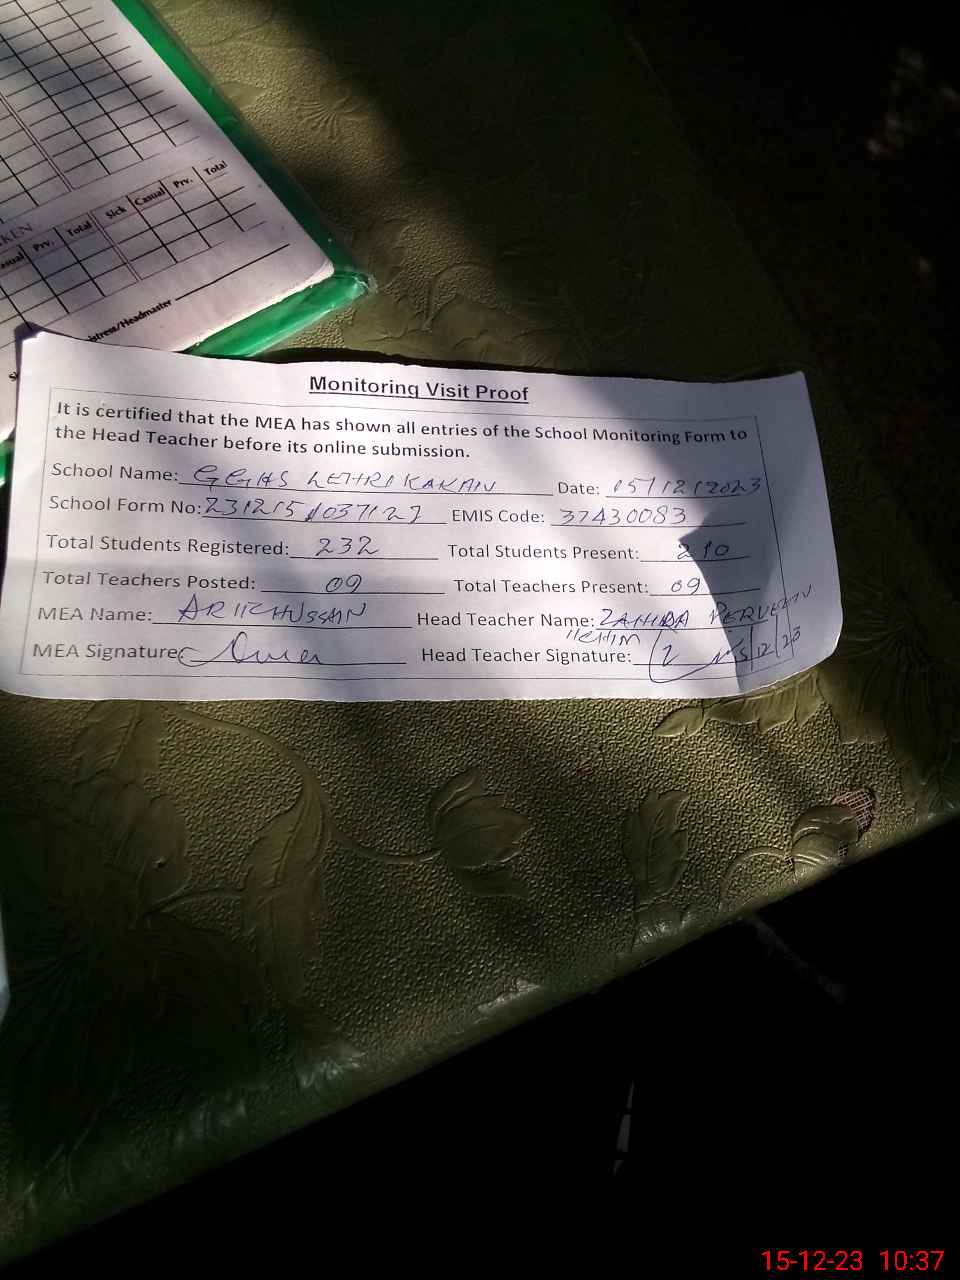 KEN
asual Prv. Total Sick Casual Prv. Total
istress/Headmaster
Monitoring Visit Proof
It is certified that the MEA has shown all entries of the School Monitoring Form to
the Head Teacher before its online submission.
School Name: GGHS LEHRI KAKAN Date: 15/12/2023
School Form No: EMIS Code: 37430083
Total Students Registered: 232 Total Students Present: 210
Total Teachers Posted: 09 Total Teachers Present: 09
MEA Name: Head Teacher Name: ZAHIDA PERVEEN
MEA Signature: Head Teacher Signature: 15/12/23
15-12-23 10:37